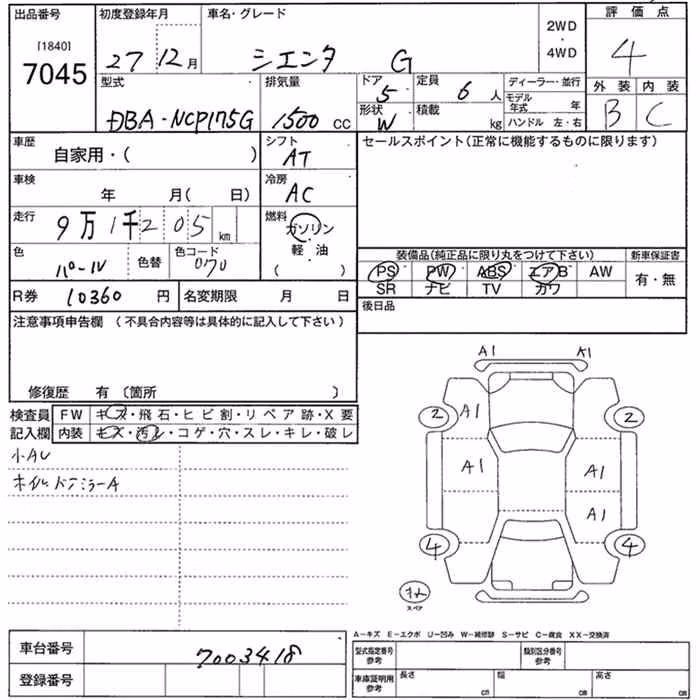 出品番号 初度登録年月 車名・グレード 2WD・4WD 評価点
[1840] 7045 27 12月 シエンタ G 4
型式 排気量 ドア 5 定員 6人 ディーラー・並行 外装 内装
DBA-NCP175G 1500 CC 形状 W 積載 kg モデル年式 年 B C
ハンドル 左・右
車歴 自家用・( ) シフト AT セールスポイント(正常に機能するものに限ります)
車検 年 月( 日) 冷房 AC
走行 9万1千205km 燃料 ガソリン・軽・油 ( )
色 パール 色替 色コード 070 装備品(純正品に限り丸をつけて下さい) 新車保証書
PS PW ABS エアB AW 有・無
SR ナビ TV カワ
R券 10360円 名変期限 月 日 後日品
注意事項申告欄 (不具合内容等は具体的に記入して下さい)
修復歴 有(箇所 )
検査員 FW キズ・飛石・ヒビ割・リペア跡・X要
記入欄 内装 キズ・汚レ・コゲ・穴・スレ・キレ・破レ
小AU
ホイル ドアミラーA
A1 A1
2 A1 2
A1 A1
A1
4 4
スペア
A-キズ E-エクボ U-凹み W-補修跡 S-サビ C-腐食 XX-交換済
車台番号 7003418 型式指定番号 参考 類別区分番号 参考
登録番号 車庫証明用 参考 長さ cm 幅 cm 高さ cm